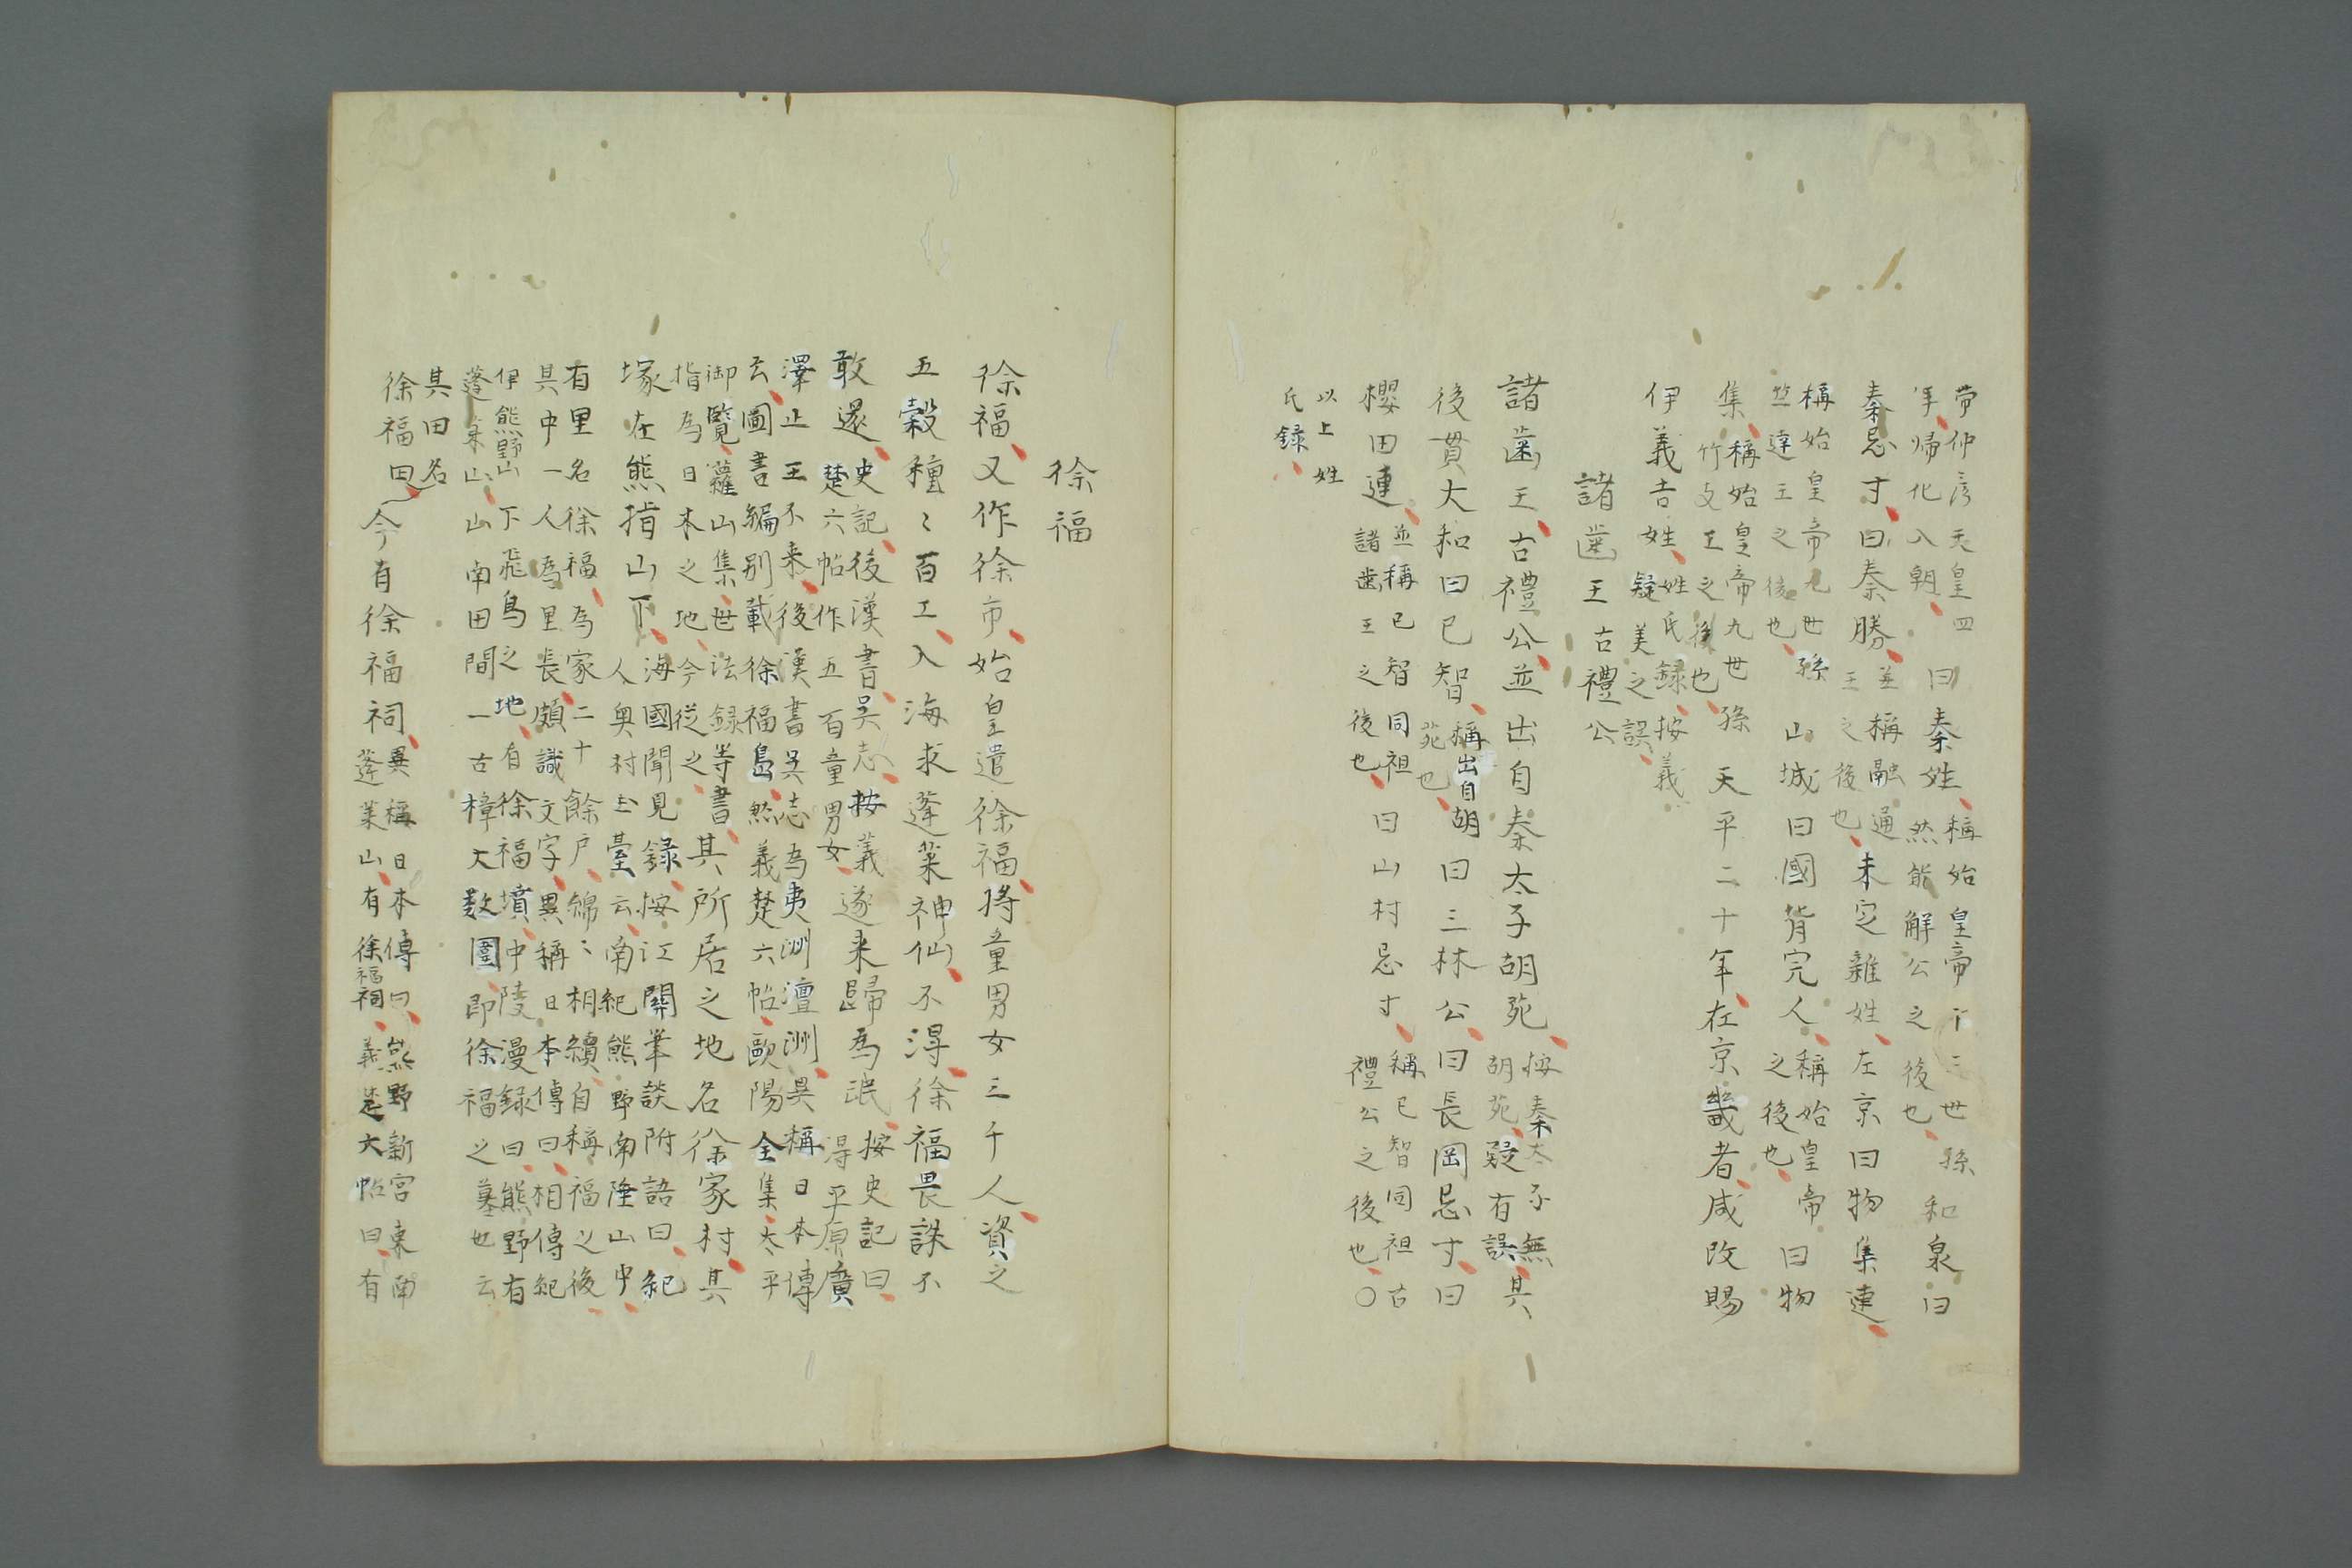 帯仲彦天皇四
年、帰化入朝、曰秦姓、稱始皇帝十三世孫
然能解公之後也、和泉曰
秦忌寸、曰秦勝、並稱融通
王之後也、未定雜姓、左京曰物集連、
稱始皇帝九世孫
竺達王之後也、山城曰國背完人、稱始皇帝
之後也、曰物
集、稱始皇帝九世孫
竹支王之後也、天平二十年、在京畿者、咸改賜
伊義吉姓、姓氏録、按義
疑美之誤、
諸齒王古禮公
諸齒王、古禮公、並出自秦太子胡苑、按秦太子無
胡苑、疑有誤、其
後貫大和曰已智、稱出自胡
苑也、曰三林公、曰長岡忌寸、曰
櫻田連、並稱已智同祖
諸齒王之後也、曰山村忌寸、稱已智同祖古
禮公之後也、〇
以上姓
氏録、
徐福
徐福、又作徐市、始皇遣徐福、將童男女三千人、資之
五穀種〻百工、入海求蓬莱神仙、不得、徐福畏誅不
敢還、史記、後漢書、呉志、按義
楚六帖作五百童男女、遂来歸為氓、按史記曰、
得平原廣
澤止王不来、後漢書呉志為夷洲澶洲、異稱日本傳
云、圖書編別載徐福島、然義楚六帖、歐陽全集、太平
御覽、蘿山集、世法録等書、
指為日本之地、今從之、其所居之地名徐家村、其
塚在熊指山下、海國聞見録、按江關筆談附語曰、紀
人奥村玉臺云、南紀熊野南陸山中、
有里名徐福、為家二十餘戸、綿〻相續、自稱福之後、
其中一人為里長、頗識文字、異稱日本傳曰、相傳紀
伊熊野山下飛鳥之地、有徐福墳、中陵漫録曰、熊野有
蓬莱山、山南田間一古樟大数圍、即徐福之墓也云
其田名
徐福田、今有徐福祠、異稱日本傳曰、熊野新宮東南
蓬莱山、有徐福祠、義楚六帖曰、有